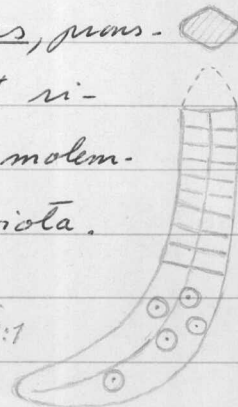 s, prons-
ri-
molem-
iota.
:1